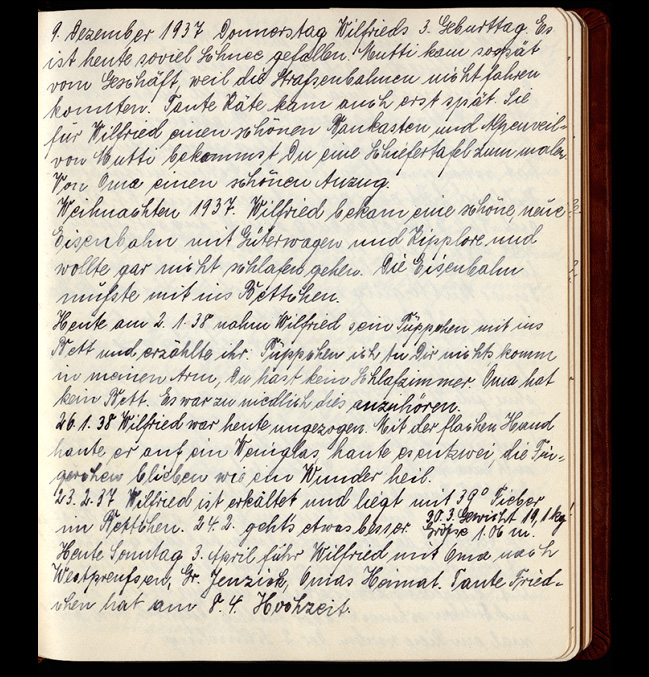 9. Dezember 1937 Donnerstag Wilfrieds 3. Geburttag. Es
ist heute soviel Schnee gefallen. Mutti kam so spät
vom Geschäft, weil die Strafsenbahnen nicht fahren
konnten. Tante Käte kam auch erst spät. Sie
fur Wilfried einen schönen Baukasten und Alpenveil-
von Mutti bekommst Du eine Schiefertafel zum malen
Von Oma einen schönen Anzug.
Weihnachten 1937. Wilfried bekam eine schöne, neue
Eisenbahn mit Güterwagen und Kipplore und
wollte gar nicht schlafen gehen. Die Eisenbahn
mufste mit ins Bettchen.
Heute am 2.1.38 nahm Wilfried sein Püppchen mit ins
Bett und erzählte ihr. Püppchen ich tu Dir nichts komm
in meinen Arm, Du hast kein Schlafzimmer. Oma hat
kein Bett. Es war zu niedlich, dies anzuhören.
26.1.38 Wilfried war heute ungezogen. Mit der flachen Hand
haute er auf ein Weinglas, haute es entzwei, die Fin-
gerchen blieben wie ein Wunder heil.
23.2.37 Wilfried ist erkältet und liegt mit 39° Fieber
im Bettchen. 24.2. geht's etwas besser. 20.3. Gewicht 19,1 kg!
Gröfse 1.06 m.
Heute Sonntag 3. April fuhr Wilfried mit Oma nach
Westpreufsen, Gr. Jenzick, Omas Heimat. Tante Fried-
chen hat am 8.4. Hochzeit.